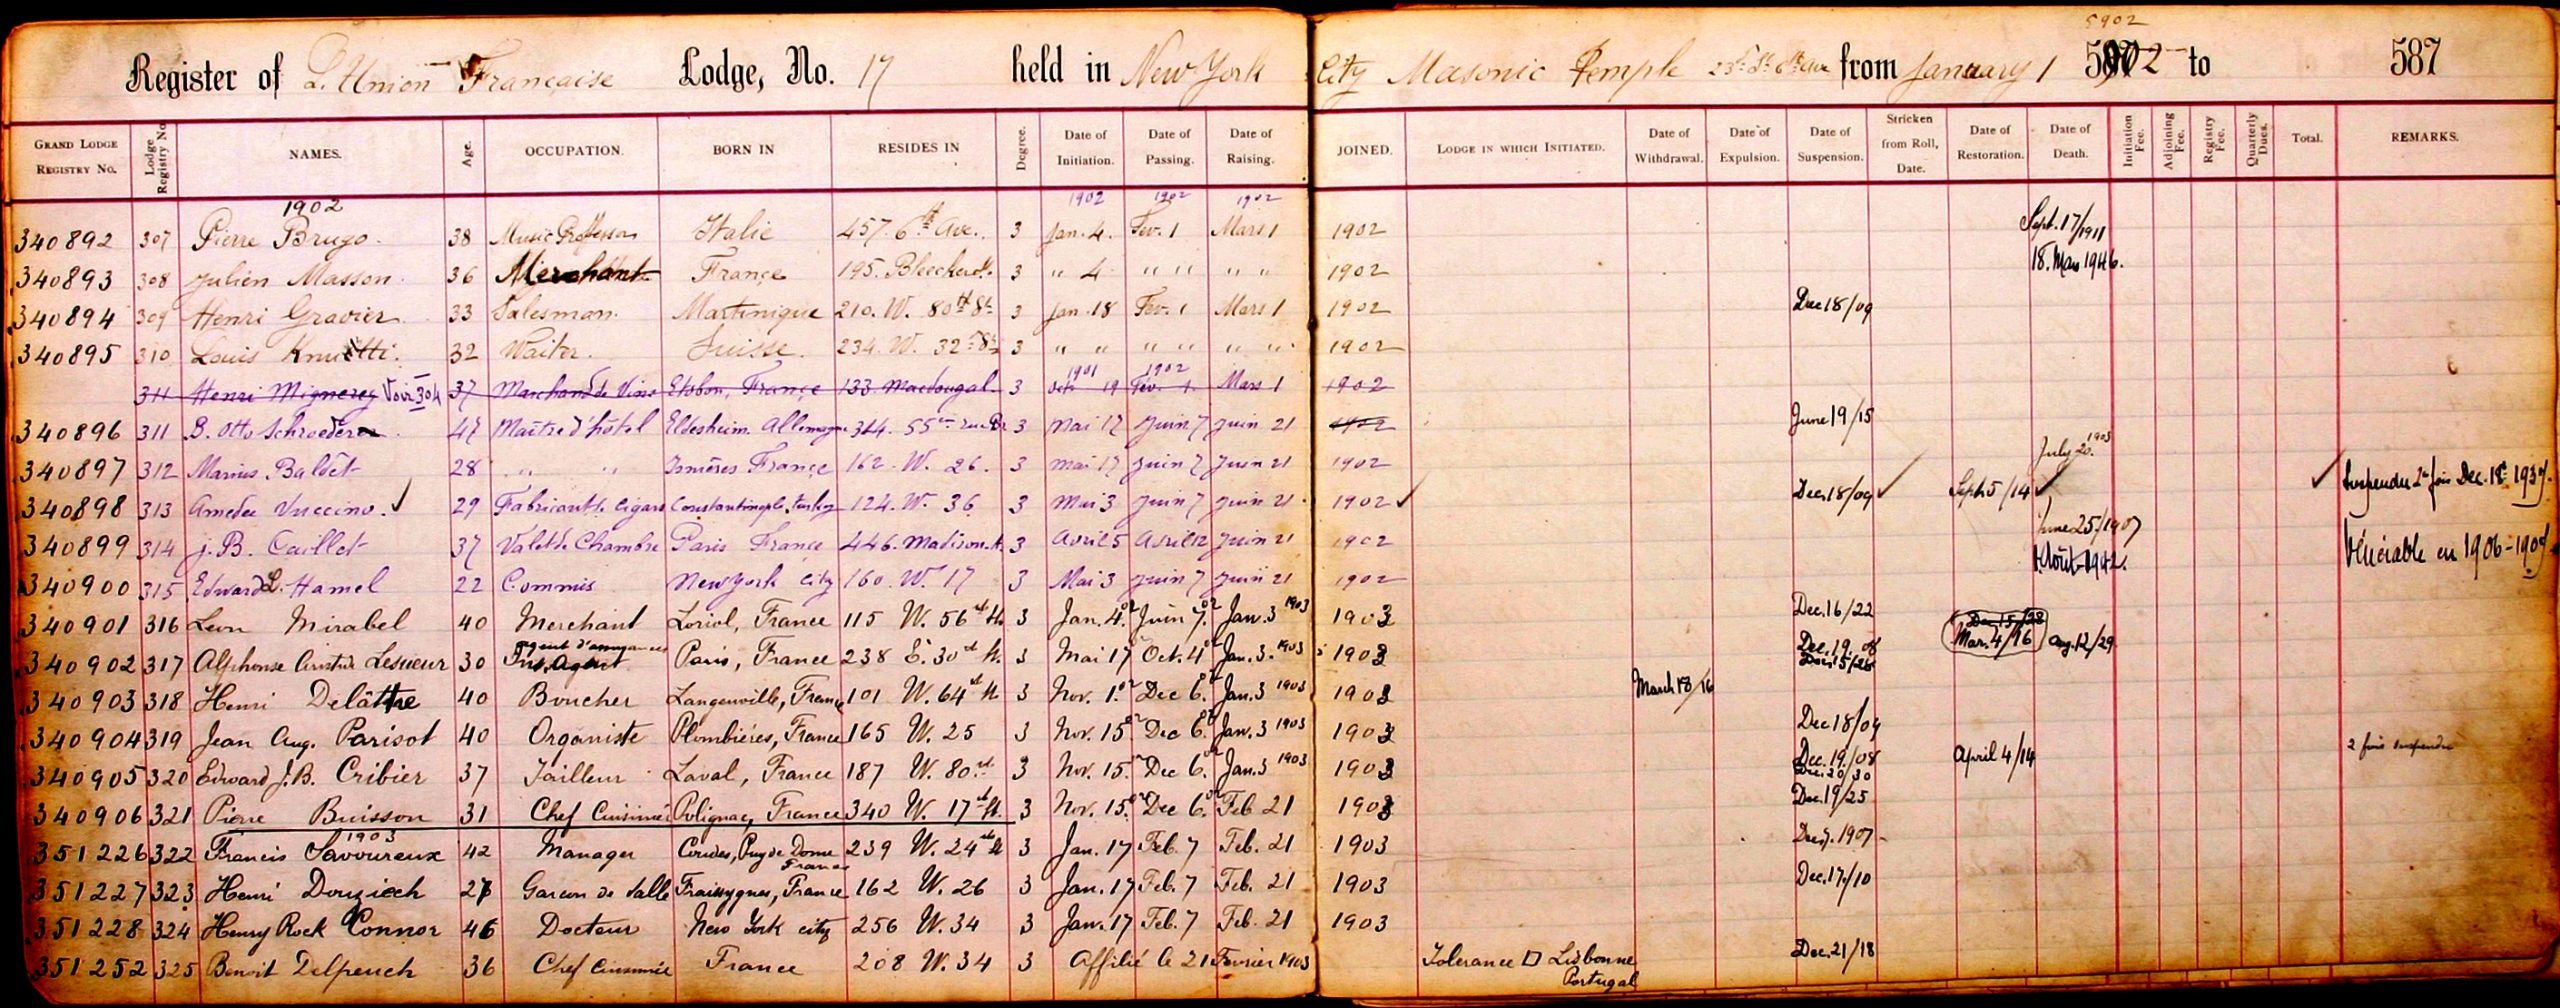 5902
Register of L'Union Française Lodge, No. 17 held in New York City Masonic Temple 23d St. 6th Ave from January 1 5902 to 587
GRAND LODGE REGISTRY NO. Lodge Registry No. NAMES. Age. OCCUPATION. BORN IN RESIDES IN Degree. Date of Initiation. Date of Passing. Date of Raising. JOINED. LODGE IN WHICH INITIATED. Date of Withdrawal. Date of Expulsion. Date of Suspension. Stricken from Roll, Date. Date of Restoration. Date of Death. Initiation Fee. Adjoining Fee. Registry Fee. Quarterly Dues. Total. REMARKS.
1902 1902 1902 1902
340892 307 Pierre Brugo. 38 Music Professor Italie 457. 6th Ave. 3 Jan. 4. Fev. 1 Mars 1 1902 Sept. 17/1911
340893 308 Julien Masson. 36 Merchant France 195. Bleecker St. 3 " 4 " " " " 1902 18. Mars 1946.
340894 309 Henri Gravier. 33 Salesman. Martinique 210. W. 80th St. 3 Jan. 18 Fev. 1 Mars 1 1902 Dec 18/09
340895 310 Louis 32 Waiter. Suisse. 234. W. 32d St. 3 " " " " " " 1902
1901 1902
311 Henri Mignerey Voir 304 37 Marchand de Vins Etobon, France 133 Macdougal. 3 Oct 19 Fev. 1. Mars 1 1902
340896 311 B. Otto Schroeder 47 Maître d'hôtel Eldesheim. Allemagne 344. 55e rue 3 Mai 17 Juin 7 Juin 21 1902 June 19/15
340897 312 Marius Baldet 28 " " France 162. W. 26. 3 Mai 17 Juin 7 Juin 21 1902 July 20. 1903
340898 313 Amedee Vuccino. ✓ 29 Fabricant de Cigars Constantinople, Turkey 124. W. 36 3 Mai 3 Juin 7 Juin 21. 1902 ✓ Dec. 18/09 ✓ Sept. 5/14 ✓ ✓ Suspendu 2e fois Dec. 18 1930.
340899 314 J. B. Caillet 37 Valet de Chambre Paris France 446. Madison A. 3 Avril 5 Avril 12 Juin 21 1902 June 25/1907
340900 315 Edward L. Hamel 22 Commis New York City 160. W. 17 3 Mai 3 Juin 7 Juin 21 1902 Août 1942. Vénérable en 1906-1907
340901 316 Leon Mirabel 40 Merchant Loriol, France 115 W. 56st St. 3 Jan. 4. 02 Juin 7. 02 Jan. 3 1903 1903 Dec. 16/22
340902 317 Alphonse Aristide Lesueur 30 Agent d'assurances Ins. Agent Paris, France 238 E. 30st St. 3 Mai 17 Oct. 4 02 Jan. 3. 1903 1903 Dec. 19. 08 Dec. 15/28 Dec 15/28 Mar. 4/16 Aug. 12/29
340903 318 Henri Delâttre 40 Boucher Langenville, France 101 W. 64st St 3 Nov. 1. 02 Dec 6. 02 Jan. 3 1903 1903 March 18/16
340904 319 Jean Aug. Parisot 40 Organiste Plombières, France 165 W. 25 3 Nov. 15 02 Dec 6. 02 Jan. 3 1903 1903 Dec 18/09
340905 320 Edward J. B. Cribier 37 Tailleur Laval, France 187 W. 80st 3 Nov. 15. Dec 6. 02 Jan. 3 1903 1903 Dec. 19./08 Dec. 20/30 April 4/14 2 fois suspendu
340906 321 Pierre Buisson 31 Chef Cuisinier Polignac, France 340 W. 17st St. 3 Nov. 15. 02 Dec 6. 02 Feb 21 1903 Dec. 19/25
1903
351226 322 Francis Savoureux 42 Manager Coudes, Puy de Dome France 239 W. 24st St 3 Jan. 17 Feb. 7 Feb. 21 1903 Dec 7. 1907
351227 323 Henri Douziech 27 Garcon de Salle Fraissygnes, France 162 W. 26 3 Jan. 17 Feb. 7 Feb. 21 1903 Dec. 17./10
351228 324 Henry Rock Connor 46 Docteur New York city 256 W. 34 3 Jan. 17 Feb. 7 Feb. 21 1903
351252 325 Benoit Delpeuch 36 Chef Cuisinier France 208 W. 34 3 Affilié le 21 Fevrier 1903 Tolerance Lisbonne Portugal Dec. 21/18